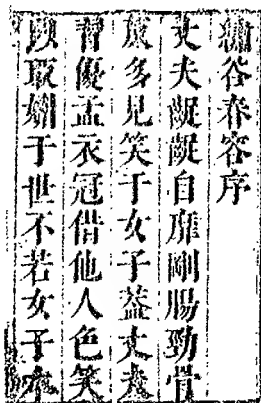 繡谷春容序
丈夫齷齪自靡剛腸勁骨
多見笑于女子葢丈夫
習優孟衣冠借他人色笑
取媚于世不若女子本